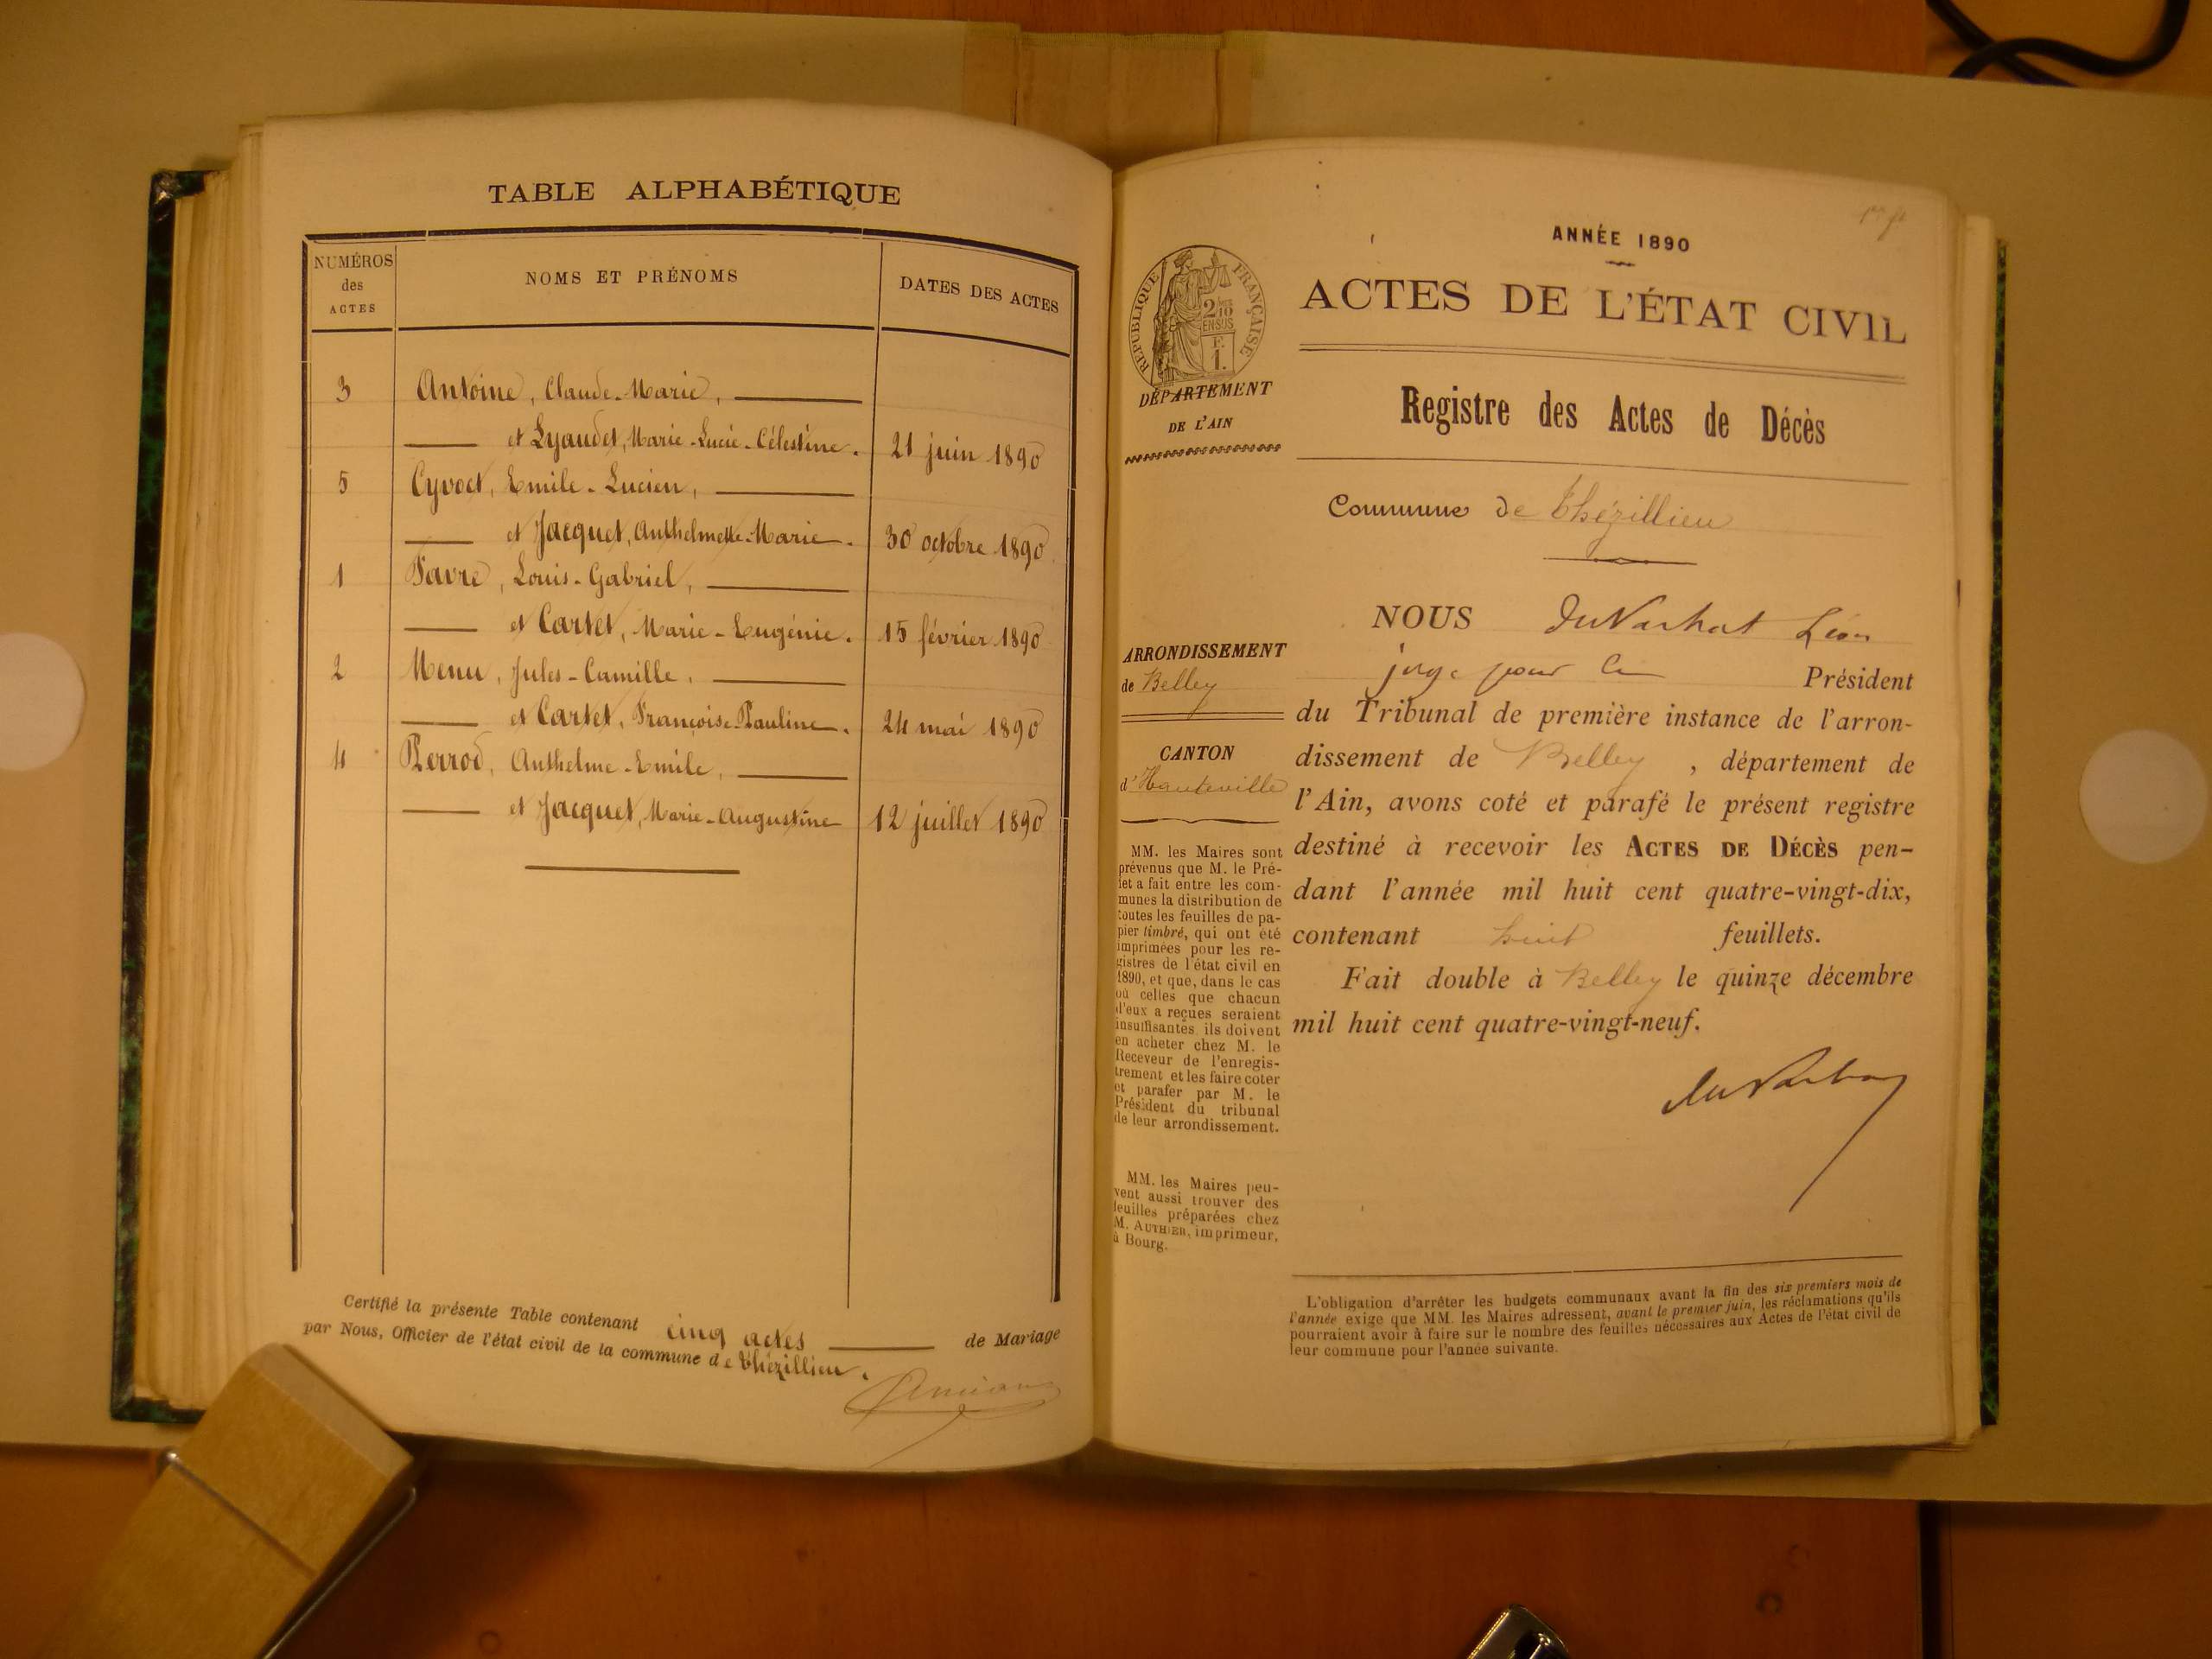 TABLE ALPHABÉTIQUE
NUMÉROS
des
ACTES
NOMS ET PRÉNOMS
DATES DES ACTES
3 Antoine, Claude-Marie,
et Lyaudet, Marie-Lucie-Célestine. 21 juin 1890
5 Cyvoct, Emile-Lucien,
et Jacquet, Anthelmette-Marie. 30 octobre 1890
1 Favre, Louis-Gabriel,
et Cartet, Marie-Eugénie. 15 février 1890
2 Menu, Jules-Camille,
et Cartet, Françoise-Pauline. 24 mai 1890
4 Perrod, Anthelme-Emile,
et Jacquet, Marie-Augustine 12 juillet 1890
Certifié la présente Table contenant cinq actes de Mariage
par Nous, Officier de l'état civil de la commune de Thézillieu.
ANNÉE 1890
ACTES DE L'ÉTAT CIVIL
Registre des Actes de Décès
Commune de Thézillieu
RÉPUBLIQUE FRANÇAISE
2 10
EN SUS
F.
1.
DÉPARTEMENT
DE L'AIN
ARRONDISSEMENT
de Belley
CANTON
d'Hauteville
MM. les Maires sont
prévenus que M. le Pré-
fet a fait entre les com-
munes la distribution de
toutes les feuilles de pa-
pier timbré, qui ont été
imprimées pour les re-
gistres de l'état civil en
1890, et que, dans le cas
où celles que chacun
d'eux a reçues seraient
insuffisantes, ils doivent
en acheter chez M. le
Receveur de l'enregis-
trement et les faire coter
et parafer par M. le
Président du tribunal
de leur arrondissement.
MM. les Maires peu-
vent aussi trouver des
feuilles préparées chez
M. AUTHIER, imprimeur,
à Bourg.
NOUS Léon
juge pour le Président
du Tribunal de première instance de l'arron-
dissement de Belley, département de
l'Ain, avons coté et parafé le présent registre
destiné à recevoir les ACTES DE DÉCÈS pen-
dant l'année mil huit cent quatre-vingt-dix,
contenant huit feuillets.
Fait double à Belley le quinze décembre
mil huit cent quatre-vingt-neuf.
L'obligation d'arrêter les budgets communaux avant la fin des six premiers mois de
l'année exige que MM. les Maires adressent, avant le premier juin, les réclamations qu'ils
pourraient avoir à faire sur le nombre des feuilles nécessaires aux Actes de l'état civil de
leur commune pour l'année suivante.